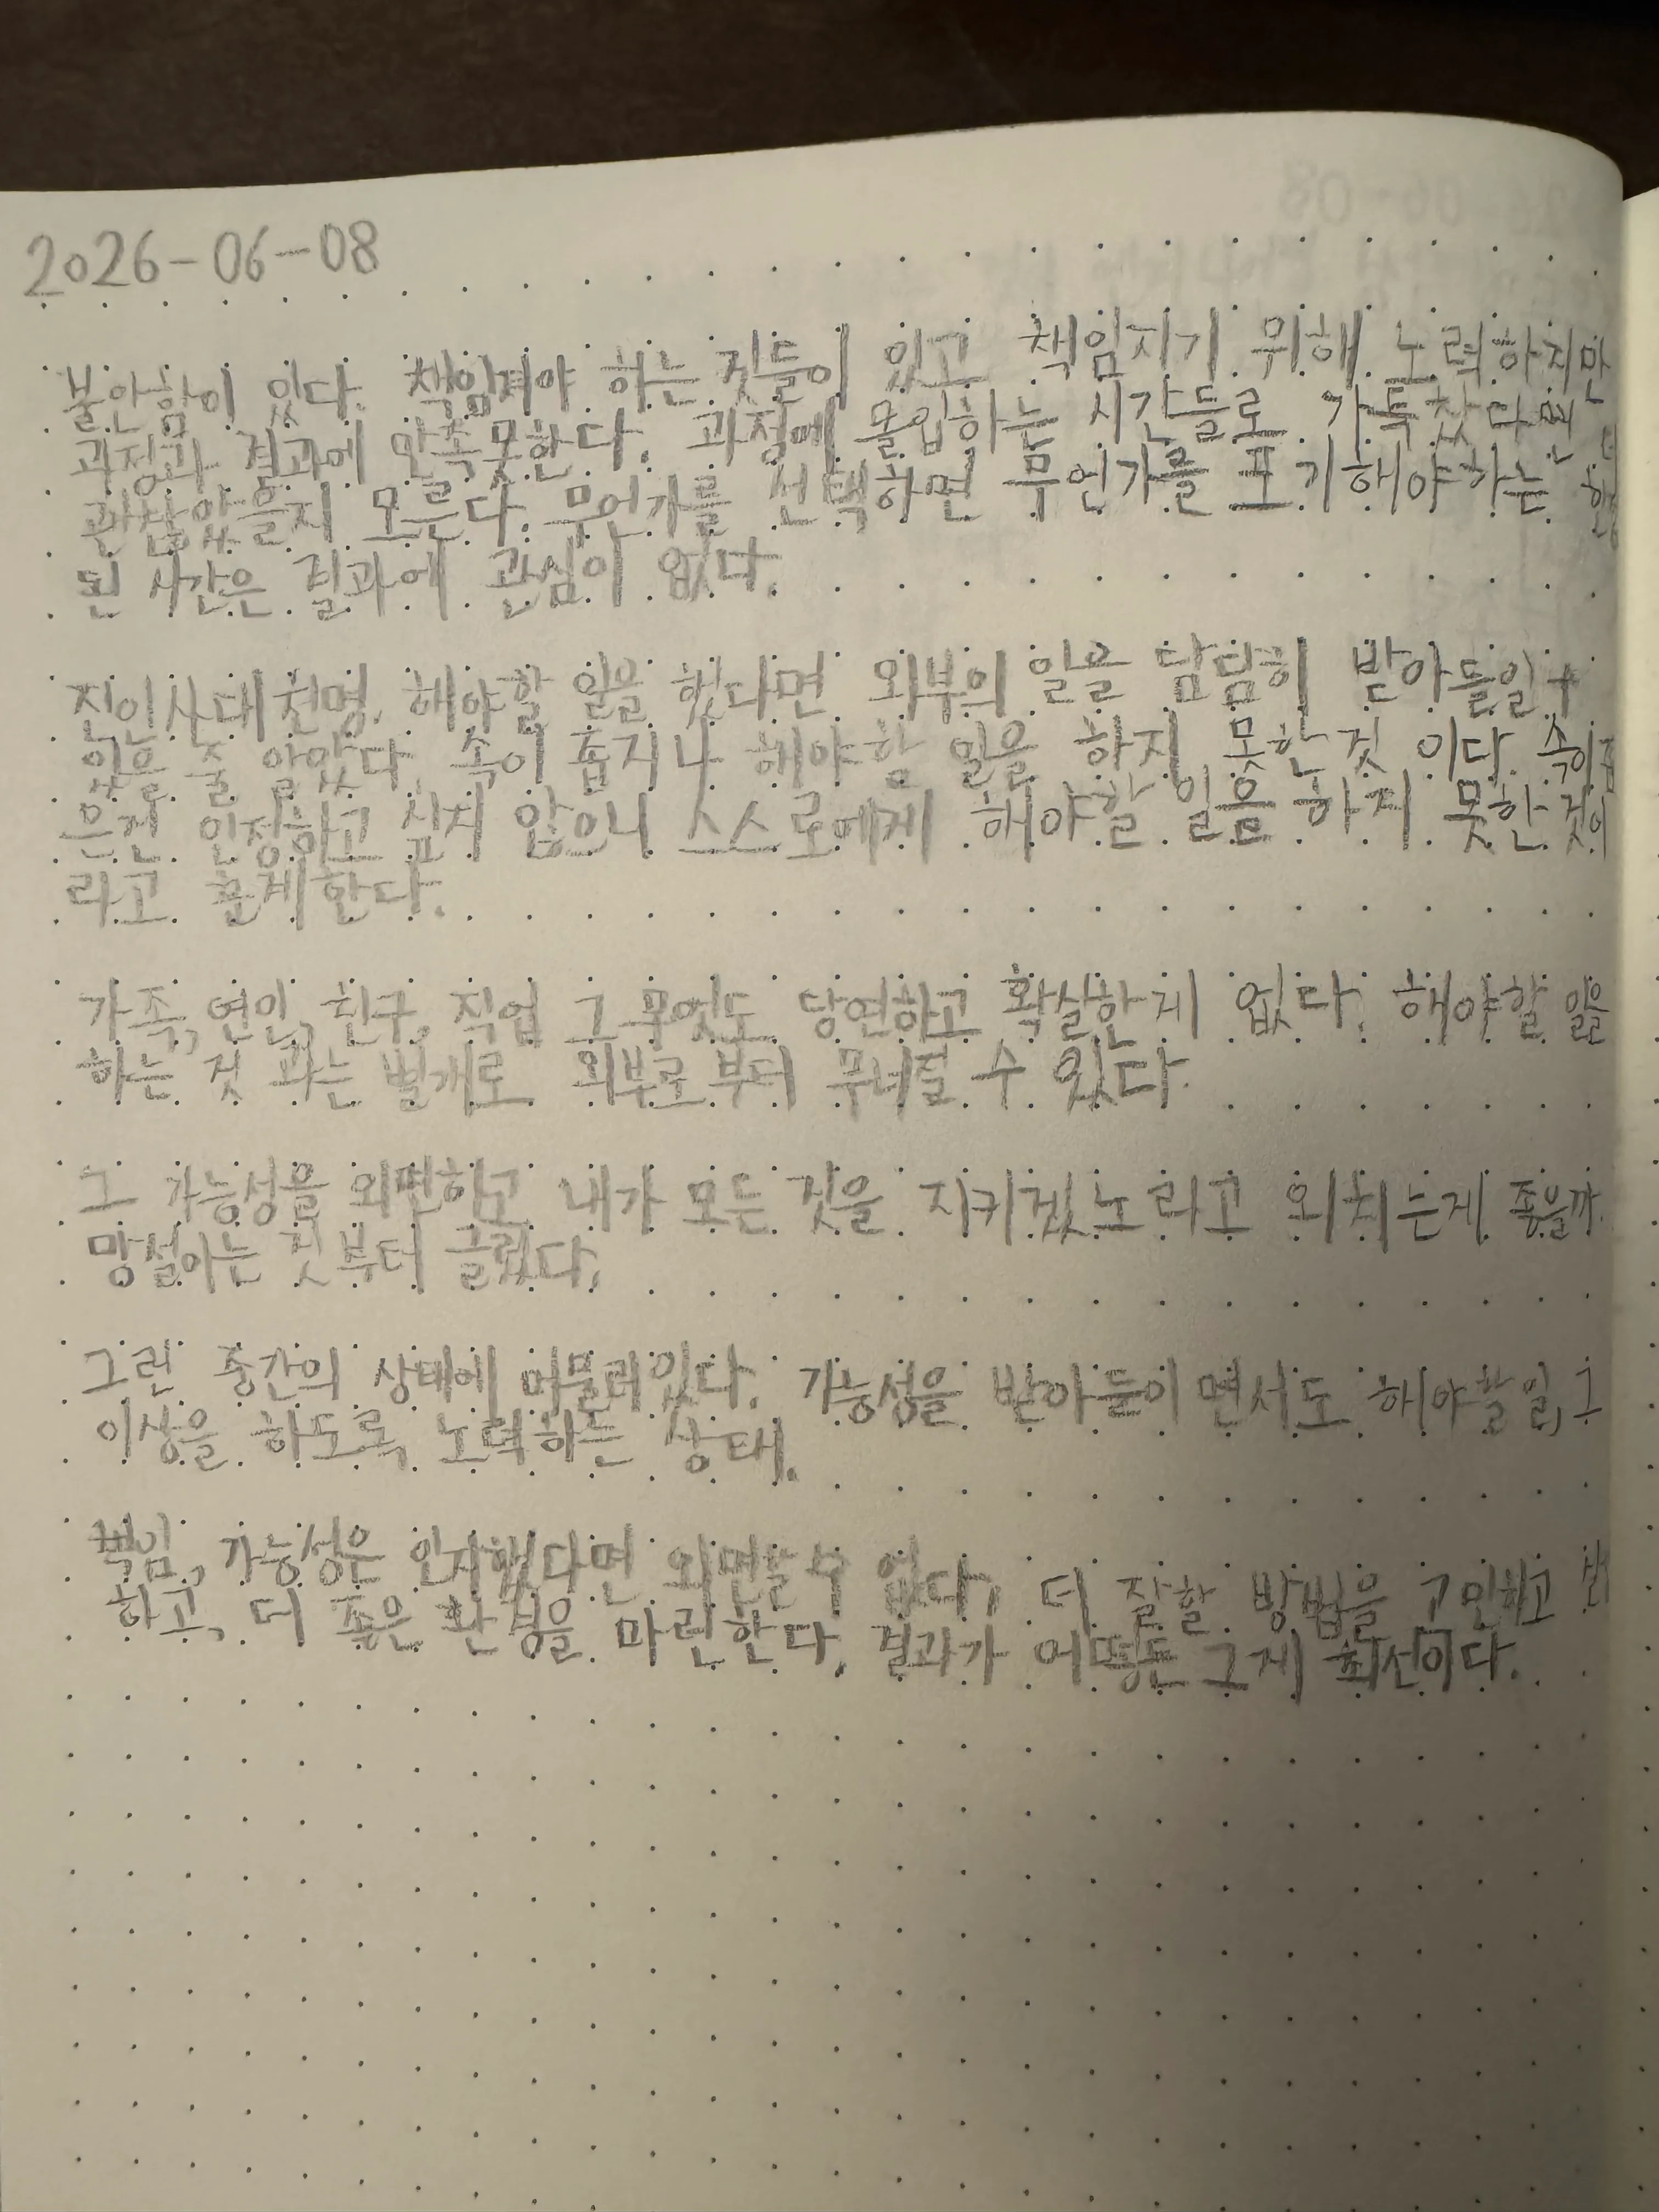 2026-06-08
불안함이 있다. 책임져야 하는 것들이 있고 책임지기 위해 노력하지만
과정과 결과에 만족못한다. 과정에 몰입하는 시간들로 가득찼다면
괜찮았을지 모른다. 무언가를 선택하면 무언가를 포기해야하는
된 시간은 결과에 관심이 없다.
진인사대천명. 해야할 일을 했다면 외부의 일을 담담히 받아들일 수
있을 줄 알았다. 속이 좁지나 해야할 일을 하지 못한 것 이다. 속이 좁
은건 인정하고 싶지 않으니 스스로에게 해야할 일을 하지 못한 것이
라고 훈계한다.
가족, 연인, 친구, 직업 그 무엇도 당연하고 확실한 게 없다. 해야할 일을
하는 것 과는 별개로 외부로 부터 무너질 수 있다.
그 가능성을 외면하고 내가 모든 것을 지키겠노라고 외치는게 좋을까
망설이는 것부터 글렀다.
그런 중간의 상태에 머물러있다. 가능성을 받아들이면서도 해야할 일, 그
이상을 하도록 노력하는 상태.
책임, 가능성은 인지했다면 외면할 수 없다. 더 잘할 방법을 고민하고
하고, 더 좋은 환경을 마련한다. 결과가 어떻든 그게 최선이다.